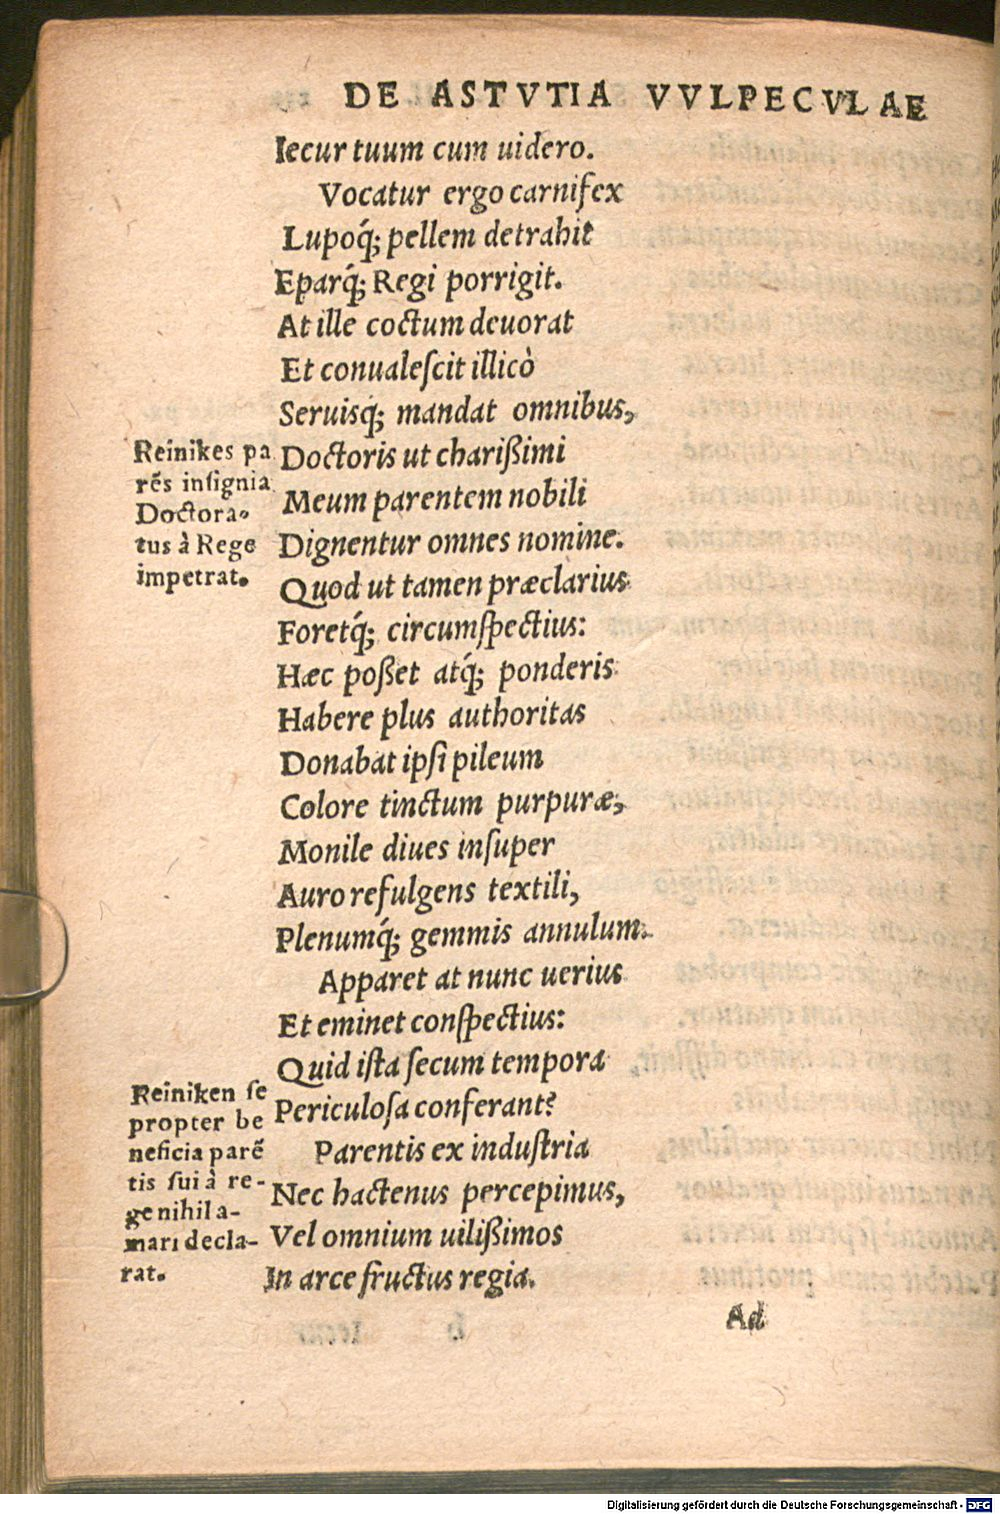 DE ASTVTIA VVLPECVLAE
Iecur tuum cum uidero.
Vocatur ergo carnifex
Lupoq́; pellem detrahit
Eparq́; Regi porrigit.
At ille coctum deuorat
Et conualeſcit illicò
Seruisq́; mandat omnibus,
Doctoris ut charißimi
Meum parentem nobili
Dignentur omnes nomine.
Quod ut tamen præclarius
Foretq́; circumſpectius:
Hæc poßet atq́; ponderis
Habere plus authoritas
Donabat ipſi pileum
Colore tinctum purpuræ,
Monile diues inſuper
Auro refulgens textili,
Plenumq́; gemmis annulum.
Apparet at nunc uerius
Et eminet conſpectius:
Quid iſta ſecum tempora
Periculoſa conferant?
Parentis ex induſtria
Nec hactenus percepimus,
Vel omnium uilißimos
In arce fructus regia.
Reinikes pa
rēs inſignia
Doctora-
tus à Rege
impetrat.
Reiniken ſe
propter be
neficia parē
tis ſui à re-
ge nihil a-
mari decla-
rat.
Ad
Digitalisierung gefördert durch die Deutsche Forschungsgemeinschaft - DFG